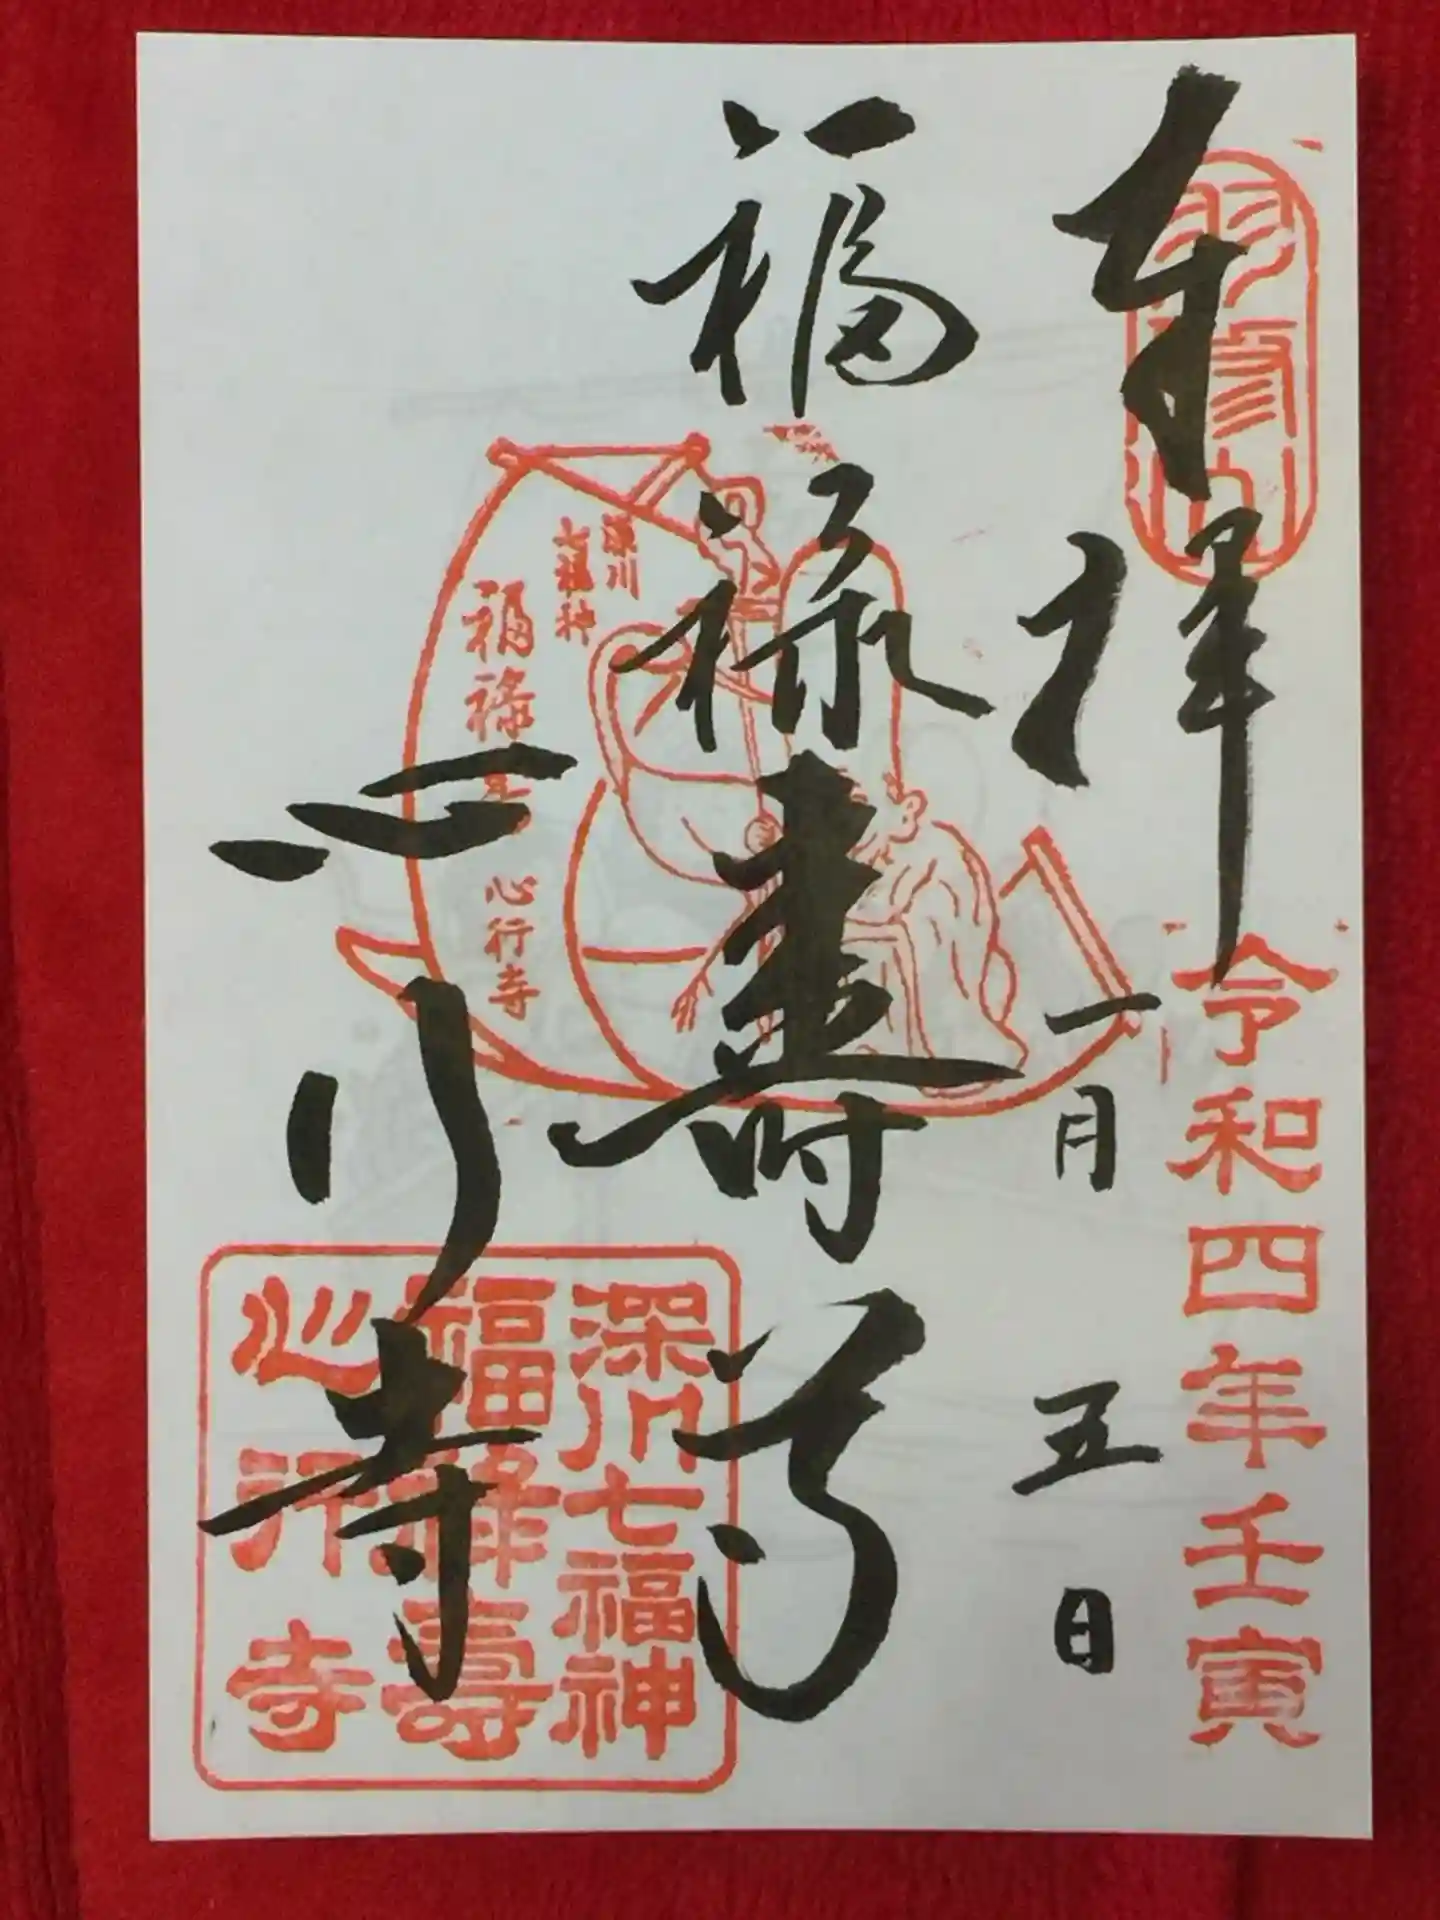 奉拝
双修山
令和四年壬寅
一月五日
福禄寿尊
深川
七福神
福禄寿
心行寺
心行寺
深川七福神
福禄壽
心行寺